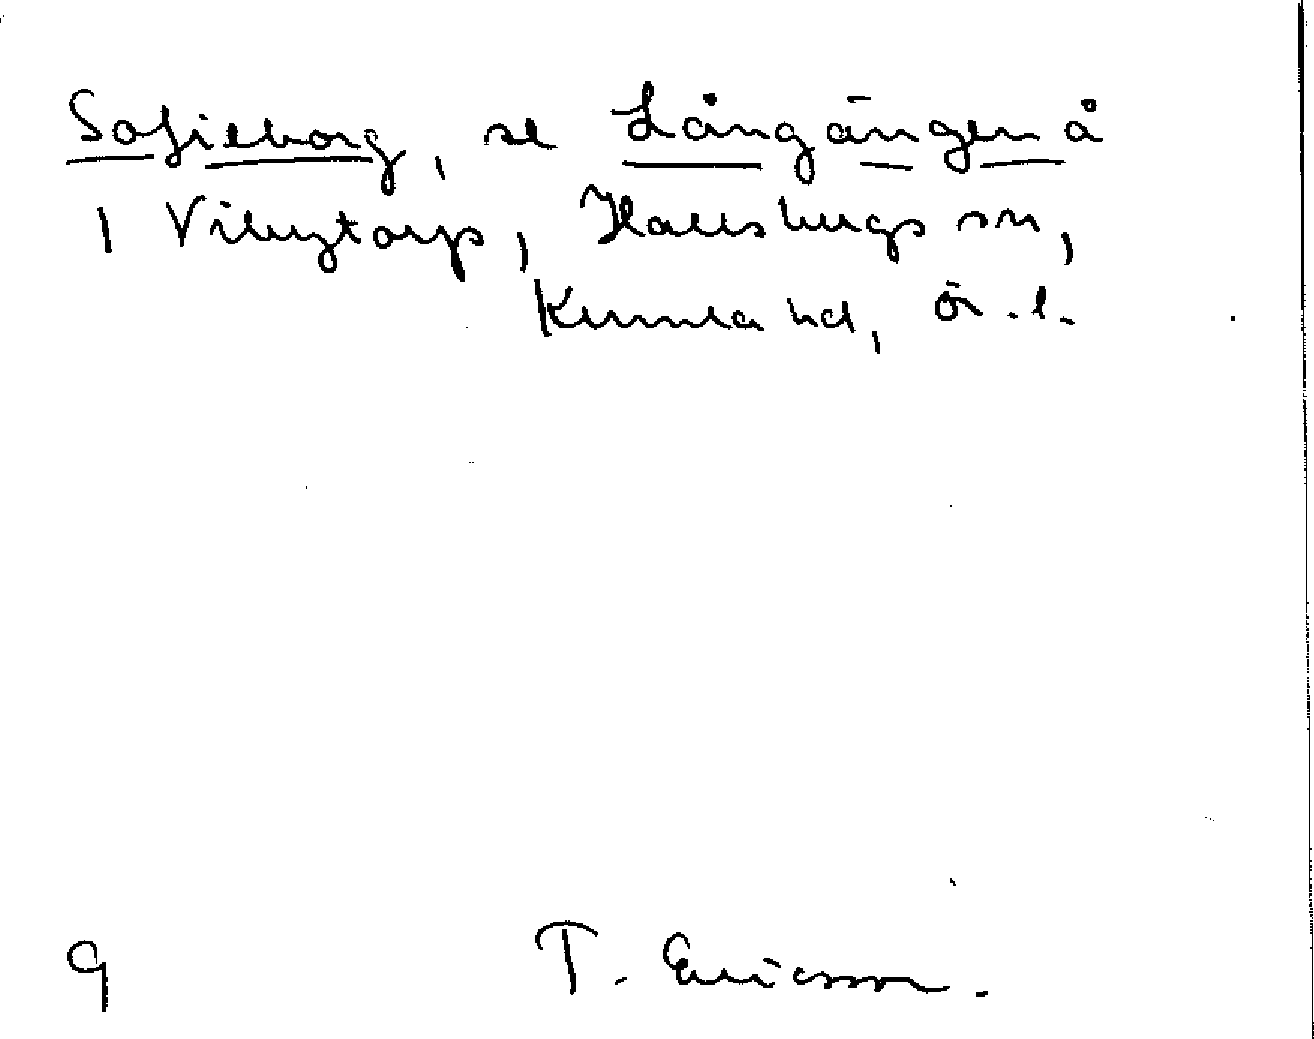 Sofieborg, se Långängen å
1 Vibytorp, Hallsbergs sn,
Kumla hd, Ör. l.
9 T. Ericsson.